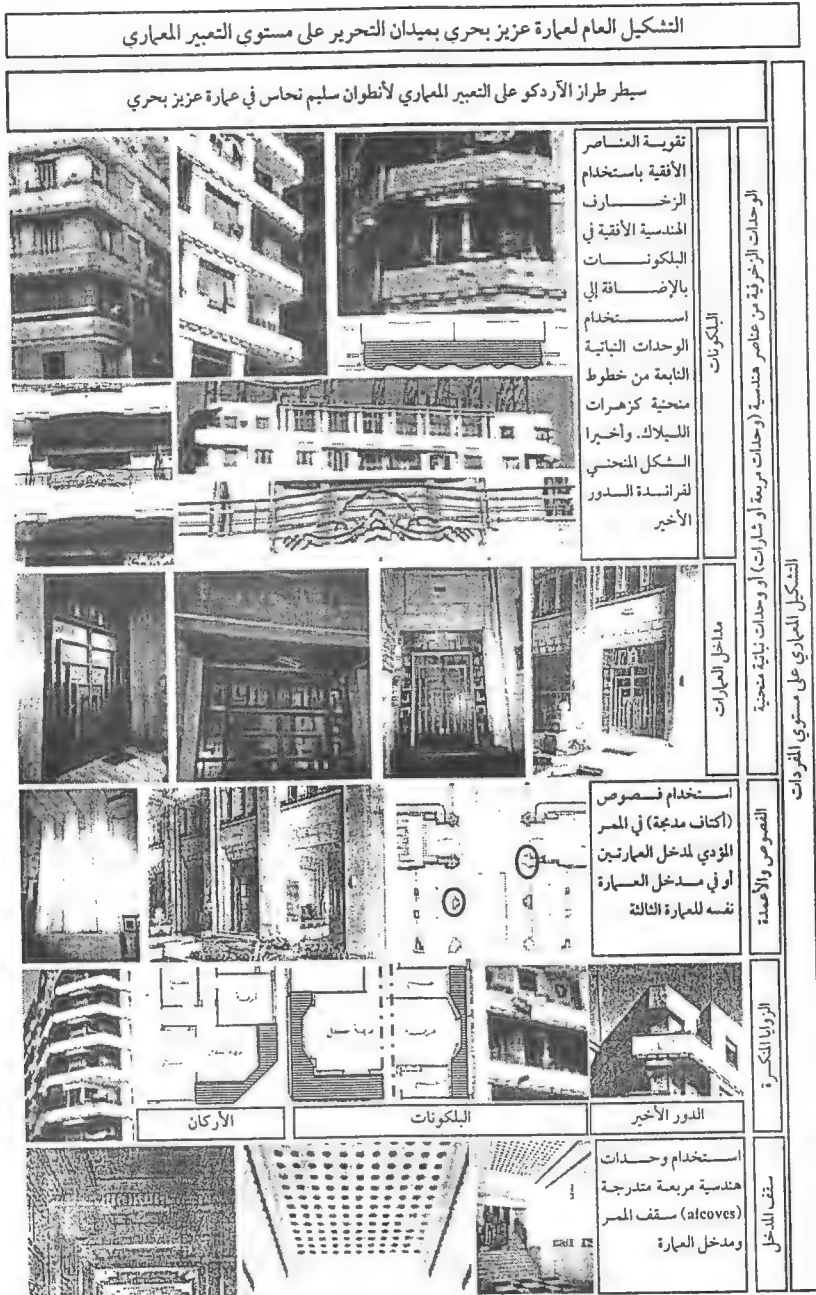 التشكيل العام لعمارة عزيز بحري بميدان التحرير على مستوى التعبير المعماري
سيطر طراز الآردكو على التعبير المعماري لأنطوان سليم نحاس في عمارة عزيز بحري
التشكيل المعماري على مستوي المفردات
الوحدات الزخرفية من عناصر هندسية (وحدات مربعة أو شارات) أو وحدات نباتية منحنية
البلكونات
تقوية العناصر
الأفقية باستخدام
الزخارف
الهندسية الأفقية في
البلكونات
بالإضافة إلي
استخدام
الوحدات النباتية
النابعة من خطوط
منحنية كزهرات
الليلاك. وأخيرا
الشكل المنحني
لفراندة الدور
الأخير
مداخل العمارات
الفصوص والأعمدة
استخدام فصوص
(أكتاف مدمجة) في الممر
المؤدي لمدخل العمارتين
أو في مدخل العمارة
نفسه للعمارة الثالثة
الزوايا المنكسرة
الدور الأخير
البلكونات
الأركان
سقف المدخل
استخدام وحدات
هندسية مربعة متدرجة
(afcoves) سقف الممر
ومدخل العمارة